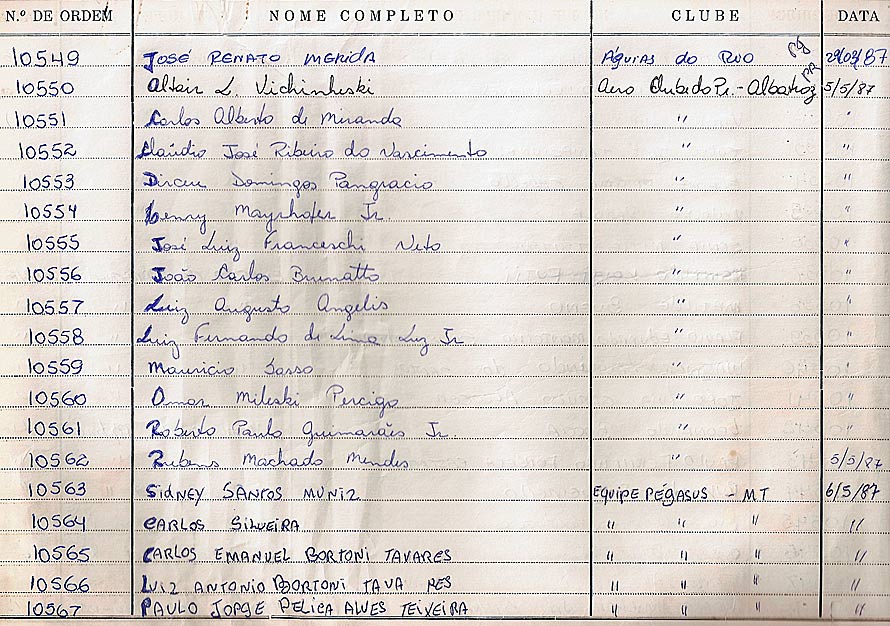 N.º DE ORDEM NOME COMPLETO CLUBE DATA
10549 JOSÉ RENATO MERIDA ÁGUIAS do RIO 29/03/87
10550 Altair L. Vichinheski Aero Clube do Pr. - Albatroz PR 5/5/87
10551 Carlos Alberto de Miranda " "
10552 Claúdio José Ribeiro do Nascimento " "
10553 Dirceu Domingos Pangracio " "
10554 Henry Mayrhofer Jr. " "
10555 José Luiz Franceschi Neto " "
10556 João Carlos Brunatto " "
10557 Luiz Augusto Angelis " "
10558 Luiz Fernando de Lima Luz Jr " "
10559 Mauricio " "
10560 Omar Mileski Percigo " "
10561 Roberto Paulo Guimarães Jr. " "
10562 Rubens Machado Mendes " 5/5/87
10563 SIDNEY SANTOS MUNIZ EQUIPE PÉGASUS - MT 6/5/87
10564 CARLOS SILVEIRA " " " "
10565 CARLOS EMANUEL BORTONI TAVARES " " " "
10566 LUIZ ANTONIO BORTONI TAVA RES " " " "
10567 PAULO JORGE PELICA ALVES TEIXEIRA " " " "